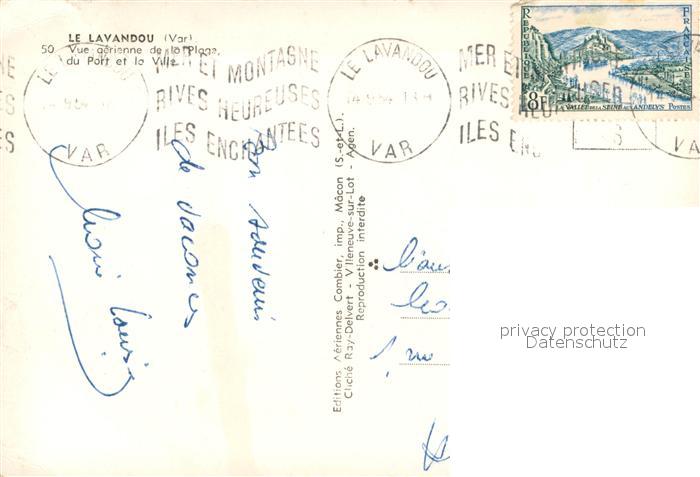 LE LAVANDOU (Var)
50 Vue aérienne de la Plage,
du Port et la Ville
LE LAVANDOU
14.9.54
VAR
MER ET MONTAGNE
RIVES HEUREUSES
ILES ENCHANTEES
LE LAVANDOU
14.9.54 13H
VAR
MER ET
RIVES HEU
ILES ENC
REPUBLIQUE
FRANÇAISE
8F
LA VALLÉE DE LA SEINE AUX ANDELYS POSTES
VA
Bon souvenir
de vacances
Marie Louise
Editions Aériennes Combier, imp., Mâcon (S.-et-L.).
Cliché Ray-Delvert - Villeneuve-sur-Lot - Agen.
Reproduction interdite
privacy protection
Datenschutz